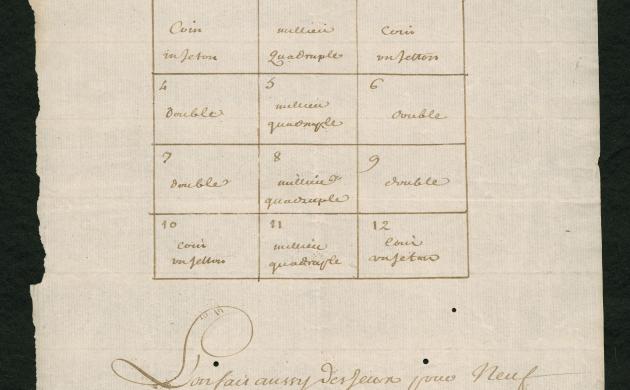 Coin
un jeton
millieu
Quadruple
Coin
un jetton
4
double
5
millieu
quadruple
6
double
7
double
8
millieu
quadruple
9
double
10
coin
un jetton
11
millieu
quadruple
12
Coin
un jeton
L'on fait aussy des Jeux pour Neuf